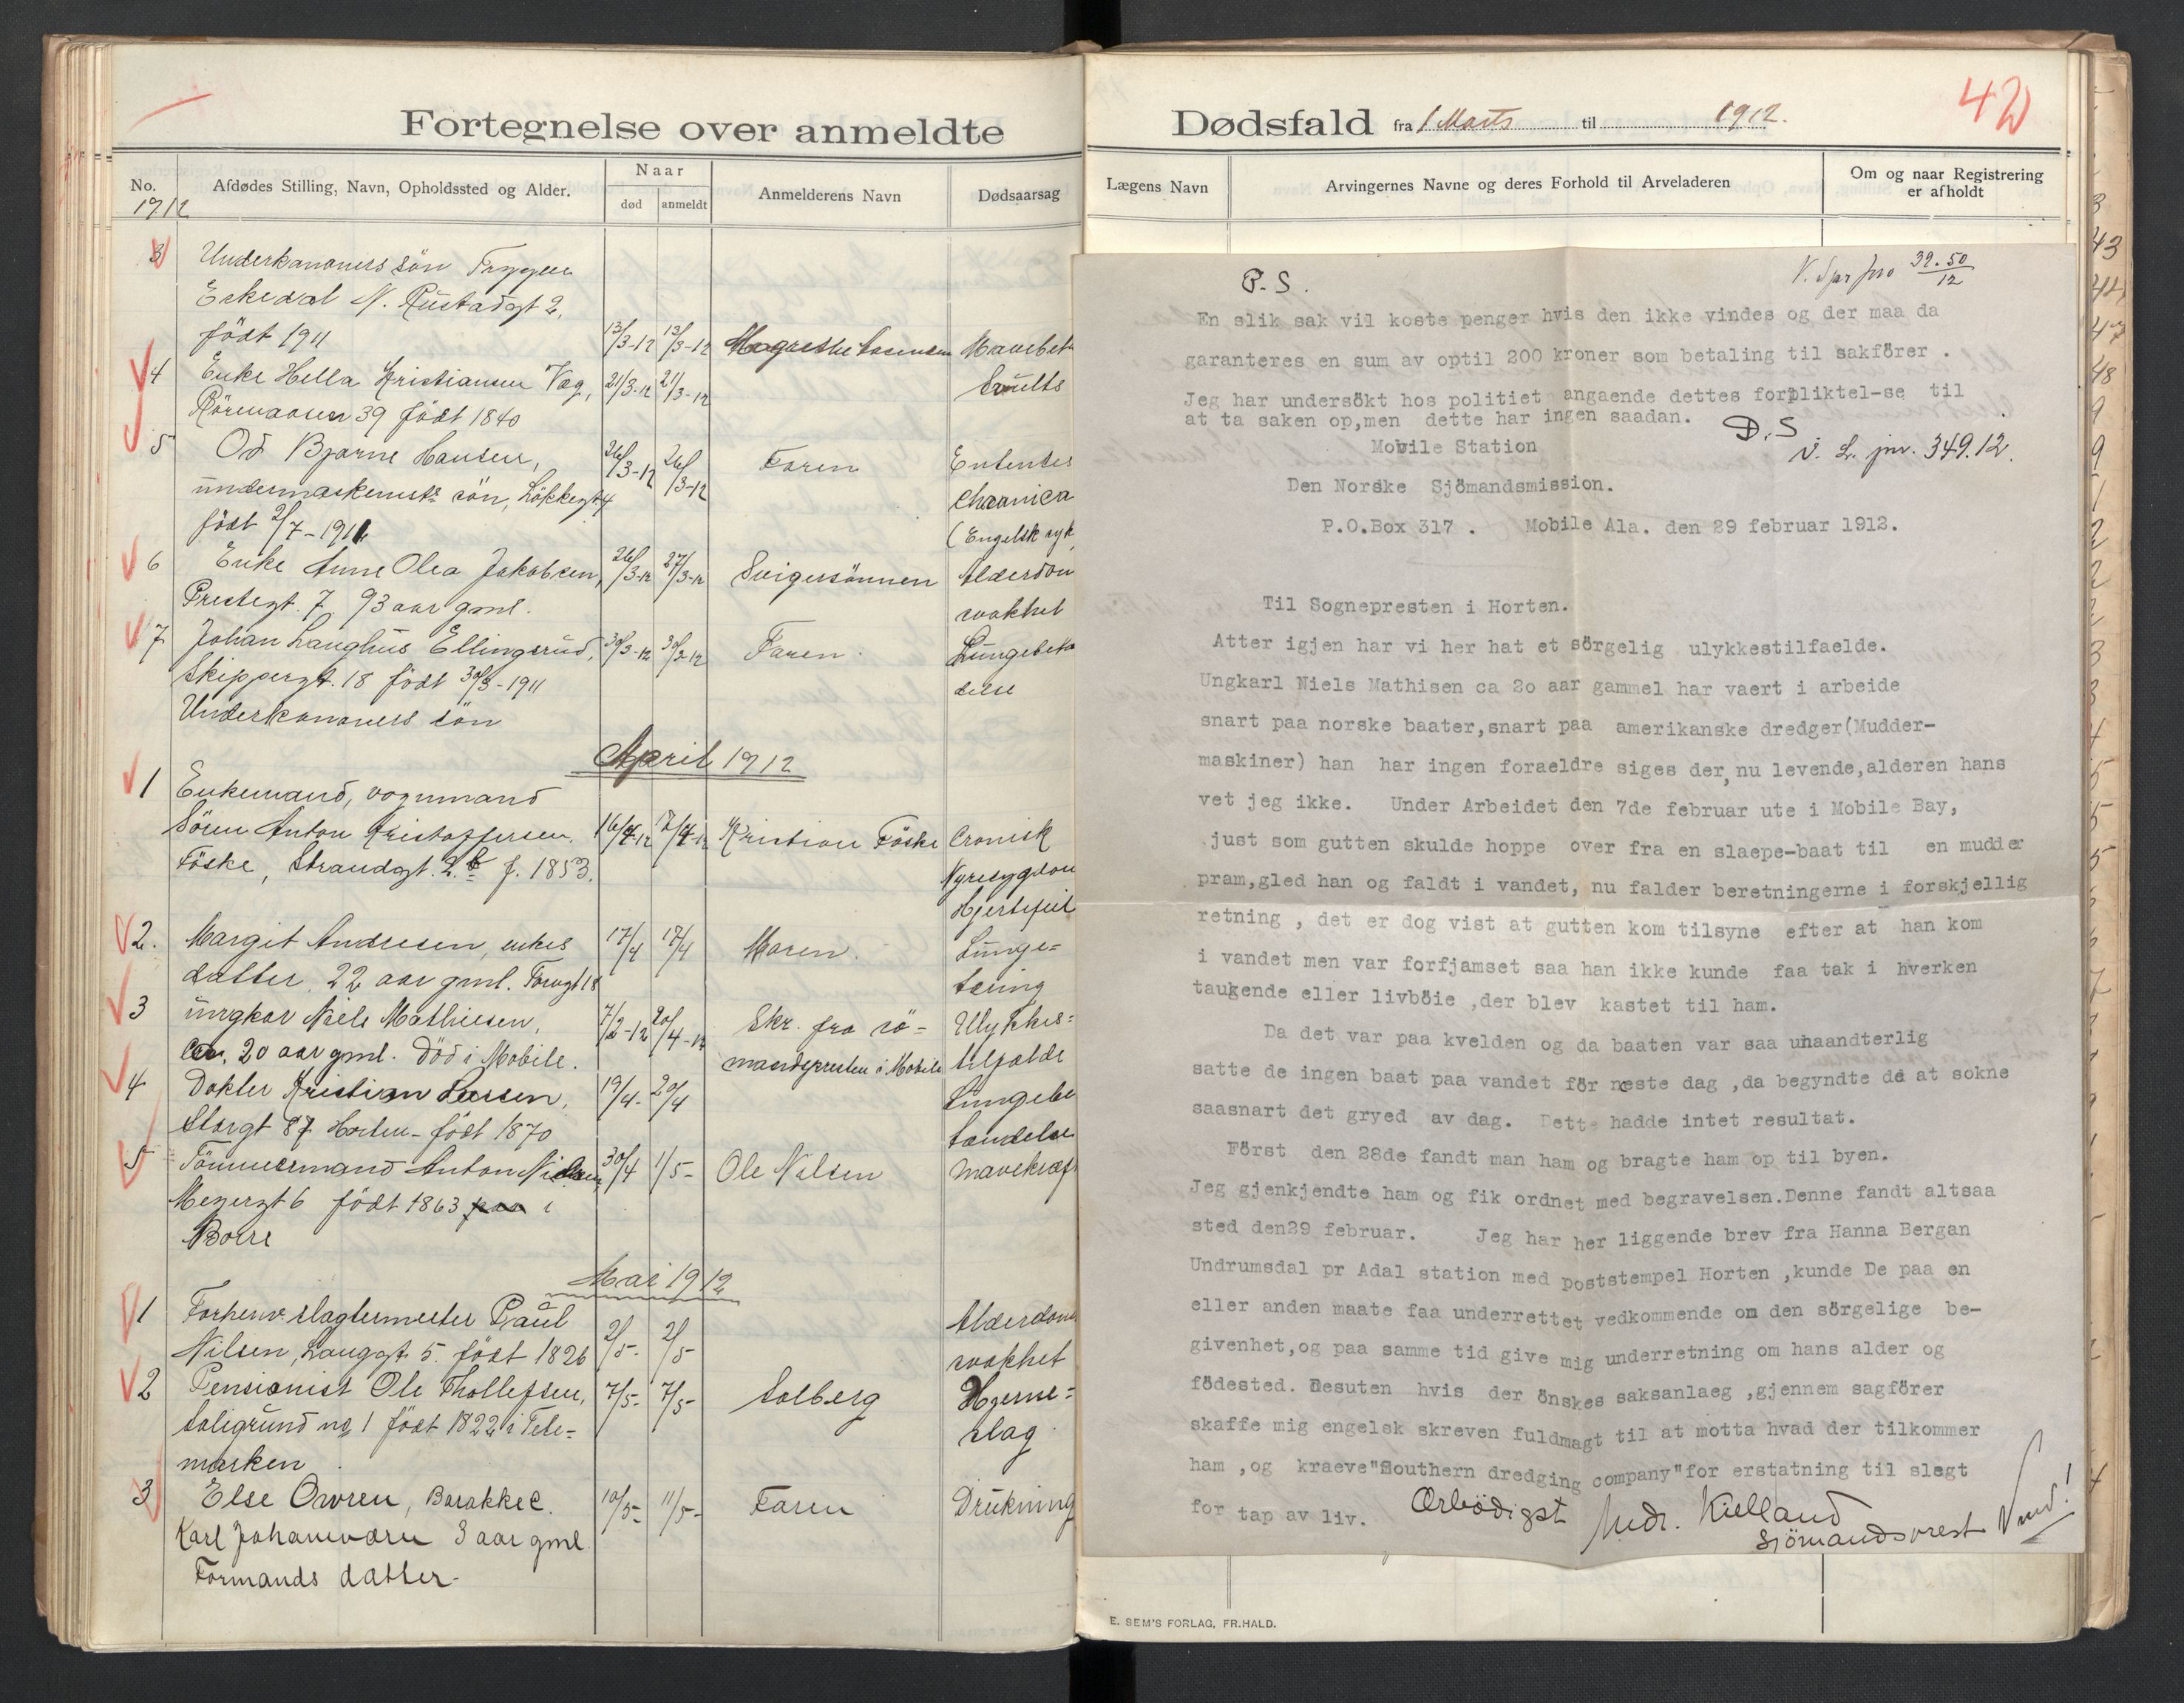 Fortegnelse over anmeldte
No.
1912
Afdødes Stilling, Navn, Opholdssted og Alder.
Naar
død
anmeldt
Anmelderens Navn
Dødsaarsag
3 Underkanoners sön Tryggve
Eskedal N. Rustadgt 2,
födt 1911 13/3-12 13/3-12
4 Enke Hella Kristiansen Væg, 21/3-12 21/3-12
Rörmaasen 39 födt 1840
5 Od Bjarne Hansen, 26/3-12 26/3-12 Faren
undermaskinists sön, Lökkegt 4 chronica
födt 2/7-1911 (Engelsk syk
6 Enke Anne Olea Jakobsen, 26/3-12 27/3-12 Svigersönnen Alderdom
Prestegt. 7, 93 aar gml. svakhet
7 Johan Langhus Ellingsrud, 30/3-12 Faren Lungebet
Skippergt. 18 födt 30/3-1911 delse
Underkanoners sön
April 1912
1 Enkemand, vognmand
Sören Anton Kristoffersen 16/4-12 17/4-12 Kristian Föske Cronisk
Föske, Strandgt. 2.b f. 1853. Nyresygdom
Hjertefeil
2. Margit Andresen, enkes 17/4 17/4 Moren. Lunge=
datter, 22 aar gml. Torvgt 18 tæring
3 ungkar Niels Mathiesen, 7/2-12 20/4-12 Skr. fra sö= Ulykkes=
ca. 20 aar gml. Död i Mobile. mandspresten i Mobile tilfælde
4 Dokter Kristian Larsen, 19/4- 20/4 Lungebe
Storgt 87 Horten - födt 1870 tændelse
5 Tömmermand Anton Nielsen 30/4 1/5- Ole Nilsen Mavekræft
Meyergt 6 födt 1863 i
Borre
Mai 1912
1 Forhenv. slagtermester Paul 2/5- 2/5 Alderdoms
Nilsen, Langgt. 5. födt 1826 svakhet
2 Pensionist Ole Thollefsen, 7/5- 7/5- Solberg Hjerne=
Soligrund no 1 födt 1822 i Tele= slag
marken
3 Else Owren, Barakke C. 10/5- 11/5- Faren Drukning
Karl Johansværn 3 aar gml.
Formands datter.
Dødsfald fra 1 Marts til 1912.
42
Lægens Navn
Arvingernes Navne og deres Forhold til Arveladeren
Om og naar Registrering
er afholdt
P.S.
En slik sak vil koste penger hvis den ikke vindes og der maa da
garanteres en sum av optil 200 kroner som betaling til sakförer .
Jeg har undersökt hos politiet angaende dettes forpliktel-se til
at ta saken op,men dette har ingen saadan.
D.S
V. L. jnr. 349.12.
Mobile Station
Den Norske Sjömandsmission.
P.O.Box 317 . Mobile Ala. den 29 februar 1912.
Til Sognepresten i Horten.
Atter igjen har vi her hat et sörgelig ulykkestilfaelde.
Ungkarl Niels Mathisen ca 2o aar gammel har vaert i arbeide
snart paa norske baater,snart paa amerikanske dredger(Mudder-
maskiner) han har ingen foraeldre siges der, nu levende,alderen hans
vet jeg ikke. Under Arbeidet den 7de februar ute i Mobile Bay,
just som gutten skulde hoppe over fra en slaepe-baat til en mudder
pram,gled han og faldt i vandet, nu falder beretningerne i forskjellig
retning , det er dog vist at gutten kom tilsyne efter at han kom
i vandet men var forfjamset saa han ikke kunde faa tak i hverken
taugende eller livböie ,der blev kastet til ham.
Da det var paa kvelden og da baaten var saa uhaandterlig
satte de ingen baat paa vandet för neste dag ,da begyndte de at sokne
saasnart det gryed av dag. Dette hadde intet resultat.
Först den 28de fandt man ham og bragte ham op til byen.
Jeg gjenkjendte ham og fik ordnet med begravelsen.Denne fandt altsaa
sted den29 februar. Jeg har her liggende brev fra Hanna Bergan
Undrumsdal pr Adal station med poststempel Horten ,kunde De paa en
eller anden maate faa underrettet vedkommende om den sörgelige be-
givenhet,og paa samme tid give mig underretning om hans alder og
födested. Desuten hvis der önskes saksanlaeg ,gjennem sagförer
skaffe mig engelsk skreven fuldmagt til at motta hvad der tilkommer
ham ,og kraeve"Southern dredging company"for erstatning til slegt
for tap av liv.
Ærbödigst
Andr. Kielland
Sjömandsprest
Vend!
E. SEM'S FORLAG, FR.HALD.